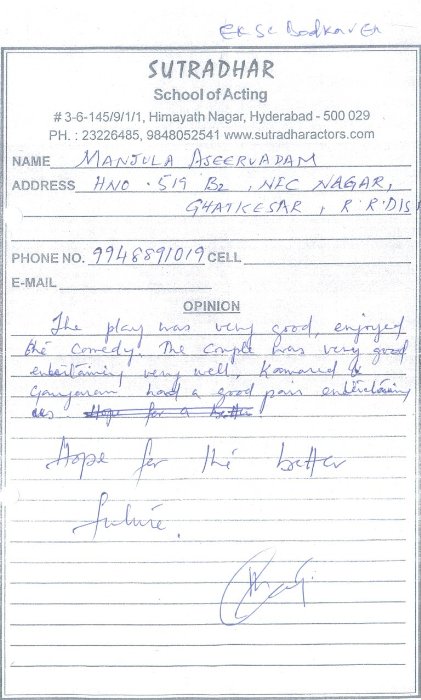 EK SE Badkar Ek
SUTRADHAR
School of Acting
# 3-6-145/9/1/1, Himayath Nagar, Hyderabad - 500 029
PH. : 23226485, 9848052541 www.sutradharactors.com
NAME MANJULA ASEERVADAM
ADDRESS HNO . 519 B2 , NFC NAGAR,
GHATKESAR , R R DIS
PHONE NO. 9948891019 CELL
E-MAIL
OPINION
The play was very good, enjoyed
the comedy. The couple was very good
entertaining very well, &
Gangaram had a good pair entertaining
us. Hope for a better
Hope for the better
future.